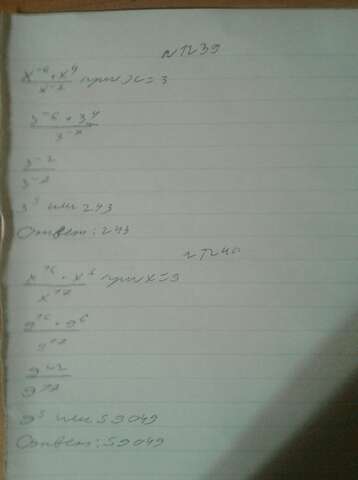 N 1239
x⁻⁶ · x⁴ / x⁻² при x = 3
3⁻⁶ · 3⁴ / 3⁻²
3⁻² / 3⁻²
3⁵ или 243
Ответ: 243
N 1240
x⁶ / x при x = 9
9⁶ / 9
9 / 9
9⁵ или 59049
Ответ: 59049